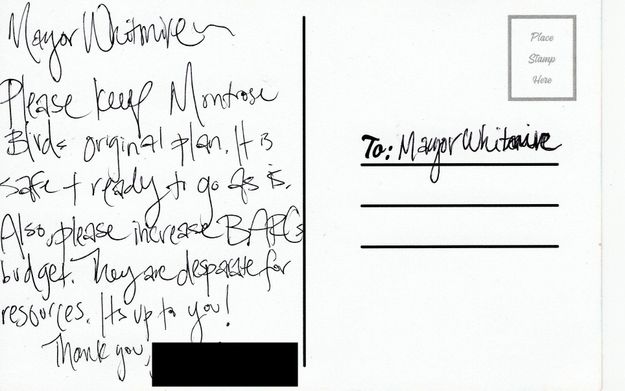 Mayor Whitmire
Please keep Montrose
Blvd original plan. It is
safe + ready to go as is.
Also, please increase BARCs
budget. They are desparate for
resources. Its up to you!
Thank you,
Place
Stamp
Here
To: Mayor Whitmire